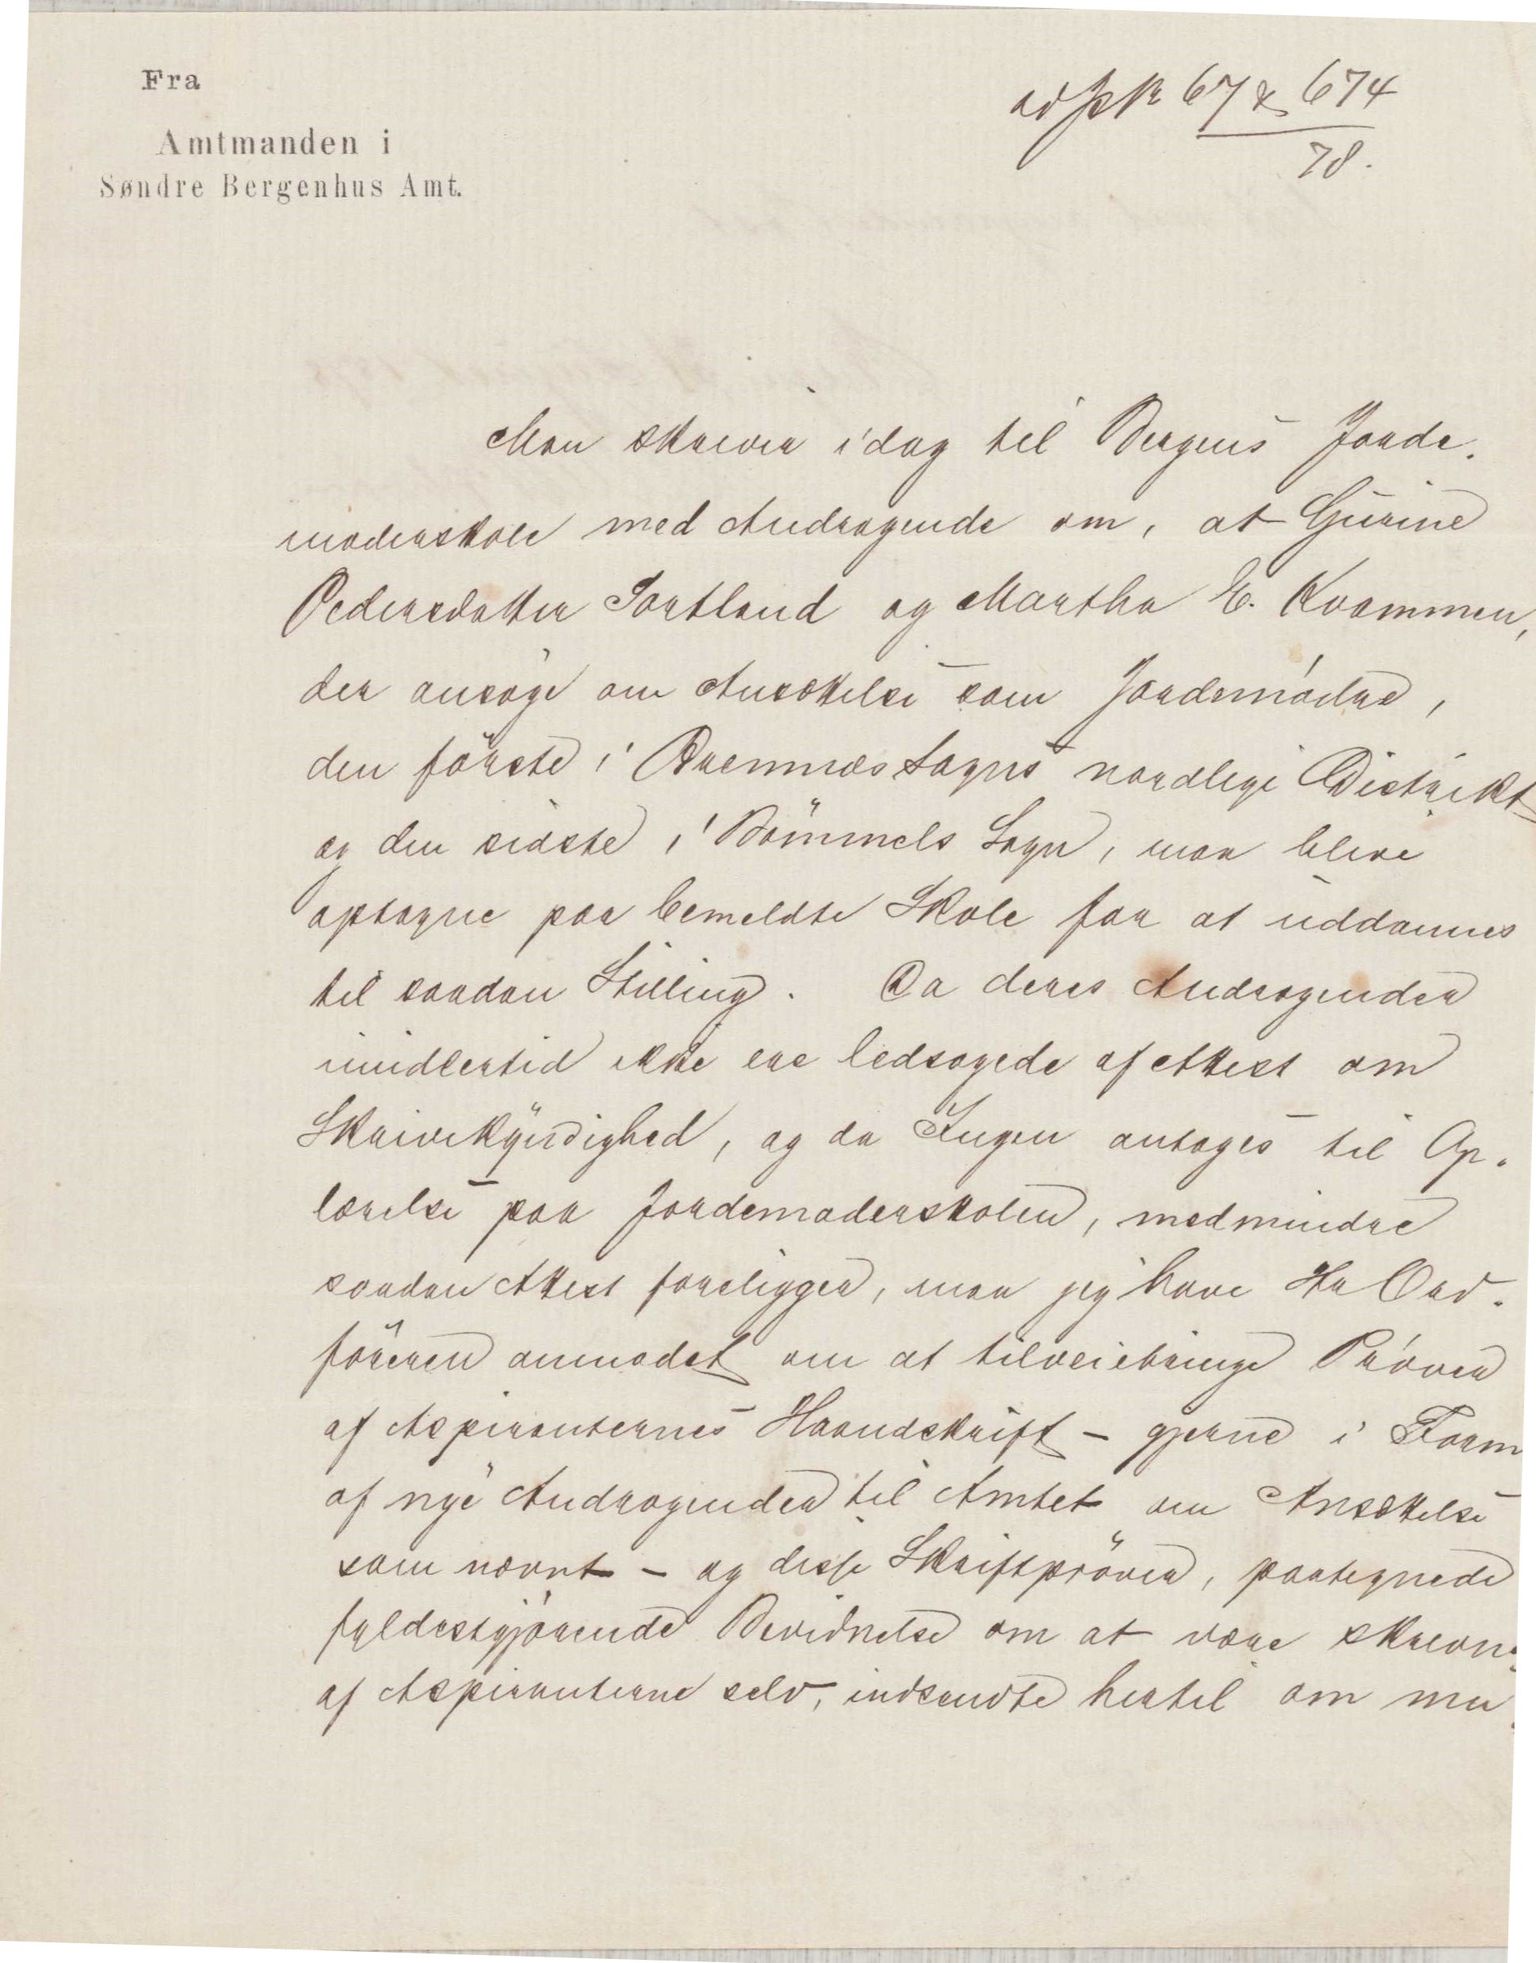 Fra
Amtmanden i
Søndre Bergenhus Amt.
67 & 674
78.
Man skriver idag til Bergens Jorde-
moderskole med Andragende om, at Gurine
Pedersdatter Sortland og Martha E. Kvammen,
der ansøge om Ansættelse som Jordemødre,
den første i Bremnæs Sogns nordlige Distrikt
og den sidste i Bømmels Sogn, maa blive
optagne paa bemeldte Skole for at uddannes
til saadan Stilling. Da deres Andragender
imidlertid ikke ere ledsagede af Attest om
Skrivekyndighed, og da Ingen antages til Op-
lærelse paa Jordemoderskolen, medmindre
saadan Attest foreligger, maa jeg have Hr Ord-
føreren anmodet om at tilveiebringe Prøver
af Aspiranternes Haandskrift - gjerne i Form
af nye Andragender til Amtet om Ansættelse
som nævnt - og disse Skriftprøver, paategnede
fyldestgjørende Bevidnelse om at være skrevne
af Aspiranterne selv, indsendte hertil om mu-